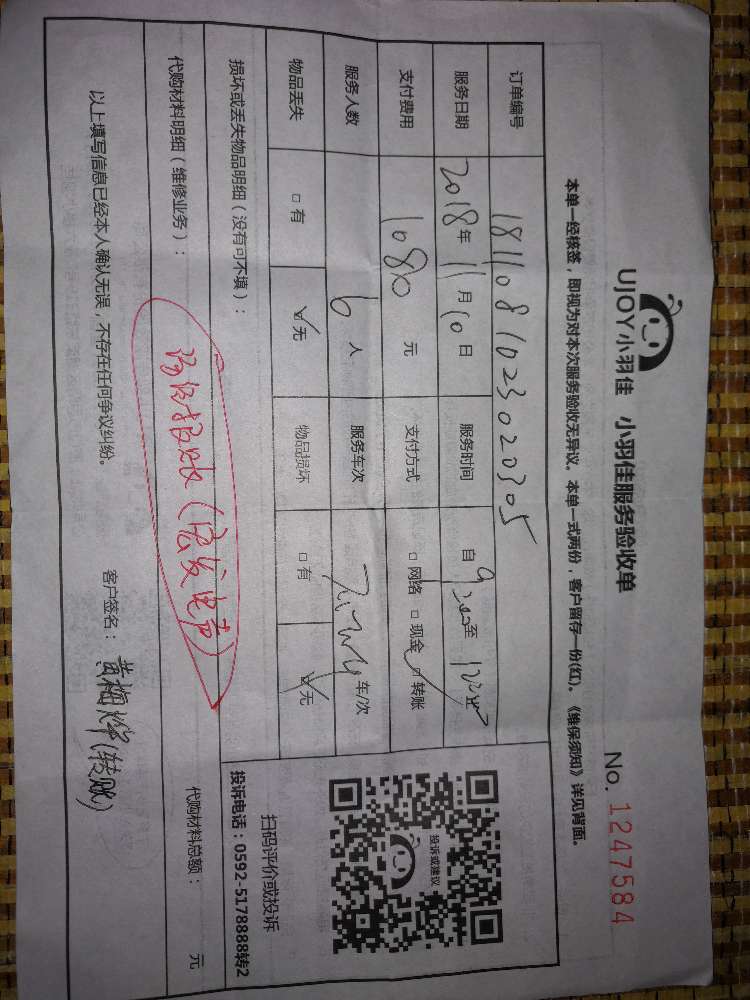 UJOY小羽佳 小羽佳服务验收单
No. 1247584
本单一经核签，即视为对本次服务验收无异议。本单一式两份，客户留存一份(红)。《维保须知》详见背面。
订单编号 181108102302030​5
服务日期 2018年11月10日 服务时间 自9:20至
支付费用 1080元 支付方式 □网络 □现金 ☑转账
服务人数 6人 服务车次 车/次
物品丢失 □有 ☑无 物品损坏 □有 ☑无
投诉或建议
扫码评价或投诉
投诉电话：0592-5178888转2
损坏或丢失物品明细（没有可不填）：
代购材料明细（维修业务）： 代购材料总额： 元
以上填写信息已经本人确认无误，不存在任何争议纠纷。 客户签名： 黄梅 (转账)